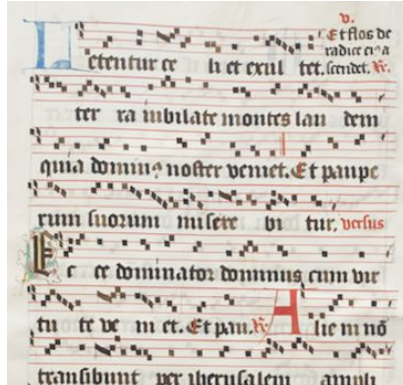 v.
Et flos de
radice eiꝰ a
Letentur ce li et exul tet. scendet. ℟.
ter ra iubilate montes lau dem
quia dominꝰ noster veniet. Et paupe
rum suorum misere bi tur. versus
Ecce dominator dominus cum vir
tu te ve ni et. Et pau. ℟. Alie ni nō
transibunt per iherusalem ampli